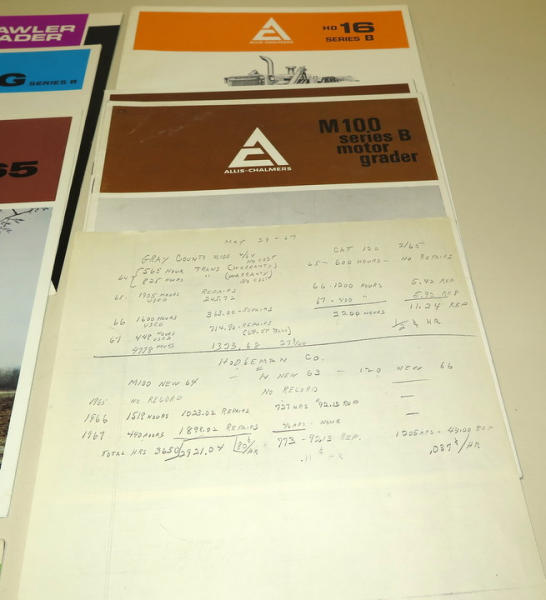 AWLER
ADER
G SERIES B
65
ALLIS-CHALMERS
HD 16
SERIES B
M100
series B
motor
grader
ALLIS-CHALMERS
MAY 29-67
GRAY COUNTY M100 4/64
CAT 120 2/65
64 565 HOUR TRANS (WARRANTY) NO COST
65- 600 HOURS- NO REPAIRS
825 HOURS " (WARRANTY) NO COST
65 1905 HOURS USED REPAIRS 245.72
66 1200 HOURS 5.42 REP
66 1600 HOURS USED 363.00 REPAIRS
67 - 400 " 5.82 REP
67 448 HOURS USED 714.90 REPAIRS
2200 HOURS 11.24 REP
4778 HOURS 1323.62
1/2 ¢ HR
HODGEMAN CO.
M100 NEW 64 - NEW 63 - 120 NEW 66
1965 NO RECORD NO RECORD
1966 1519 HOURS 1023.02 REPAIRS 737 HRS 92.13 REP
1967 490 HOURS 1898.02 REPAIRS HOUR
TOTAL HRS 3650 2921.04 80¢/HR - 773 - 92.13 REP. 1205 HRS - 49.00 REP
.11 ¢ HR .037 ¢/HR